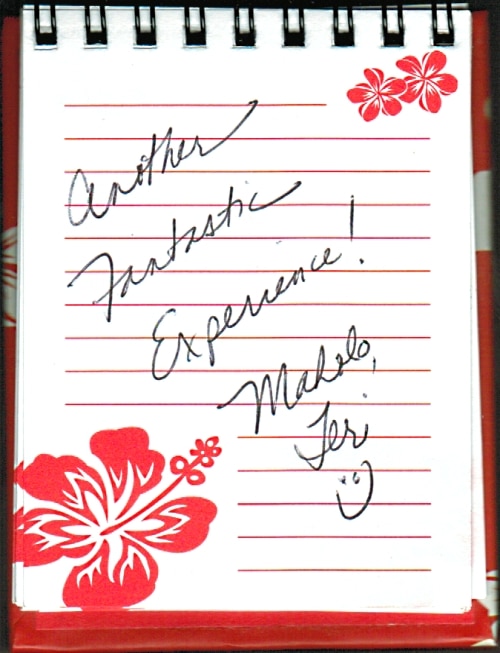 Another
Fantastic
Experience!
Mahalo,
Teri